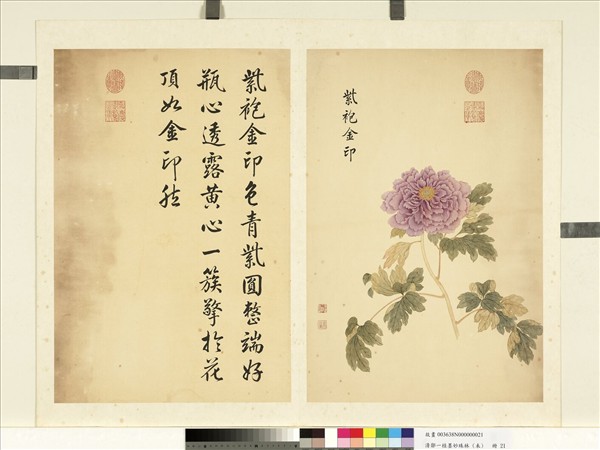 紫袍金印
紫袍金印色青紫圓整端好
瓶心透露黄心一簇擎於花
頂如金印然
故畫 003638N000000021
清鄒一桂墨妙珠林(未) 冊 21